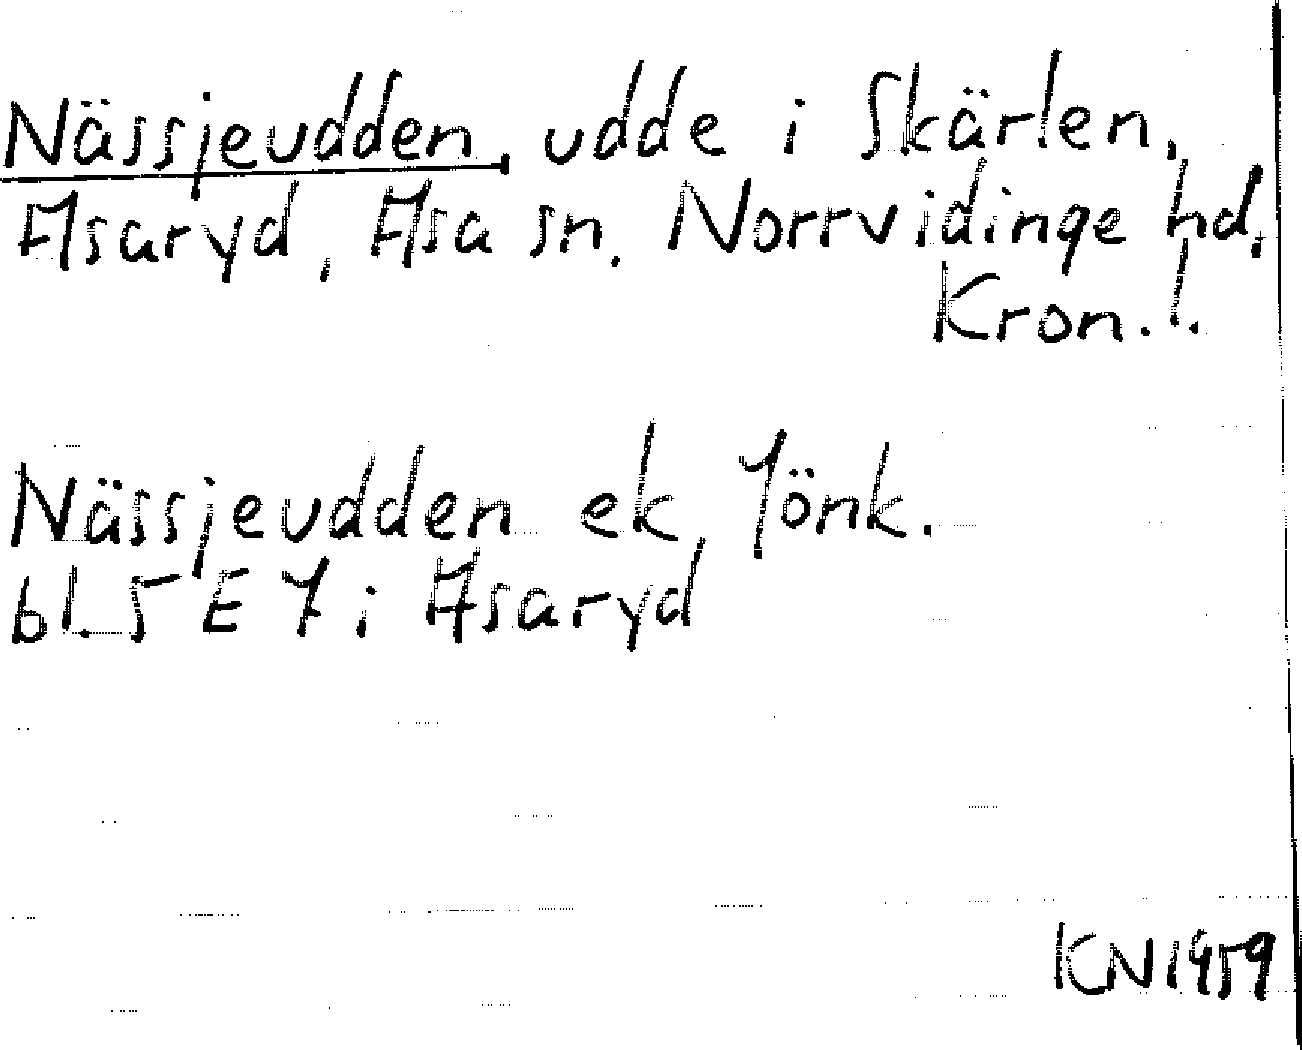 Nässjeudden, udde i Skärlen,
Asaryd, Asa sn. Norrvidinge hd.
Kron. l.
Nässjeudden ek Jönk.
bl. 5 E 7 i Asaryd
KN 1959